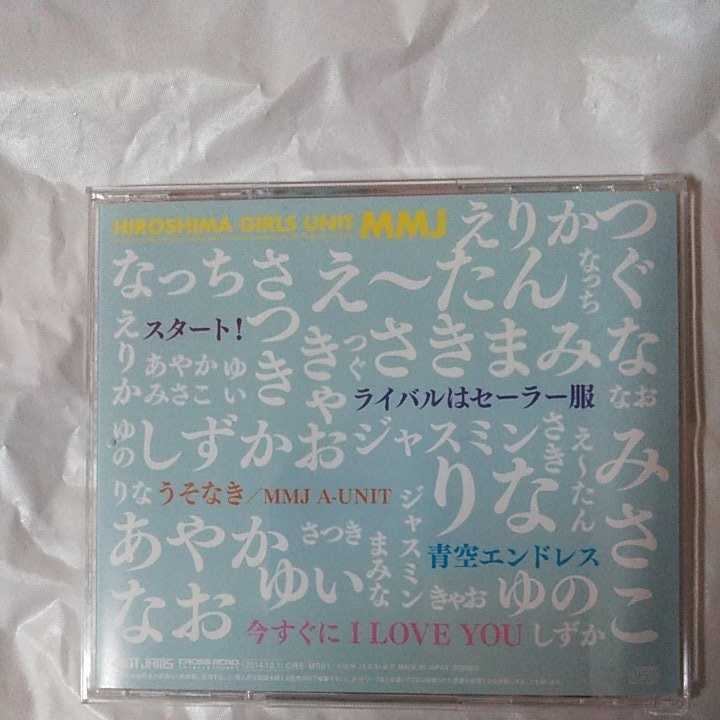 HIROSHIMA GIRLS UNIT MMJ
えりか
つぐな
なっちさ
え〜たん
なっち
えりか
スタート!
つき
きゃ
つぐ
さき
まみな
あやか
ゆい
みさこ
ライバルはセーラー服
なお
ゆの
しずか
お
ジャスミン
さき
え〜たん
みさこ
りな
うそなき/MMJ A-UNIT
ジャスミン
りな
あやか
さつき
まみな
青空エンドレス
なお
ゆい
きゃお
ゆの
今すぐに I LOVE YOU
しずか
2014.12.1
MADE IN JAPAN